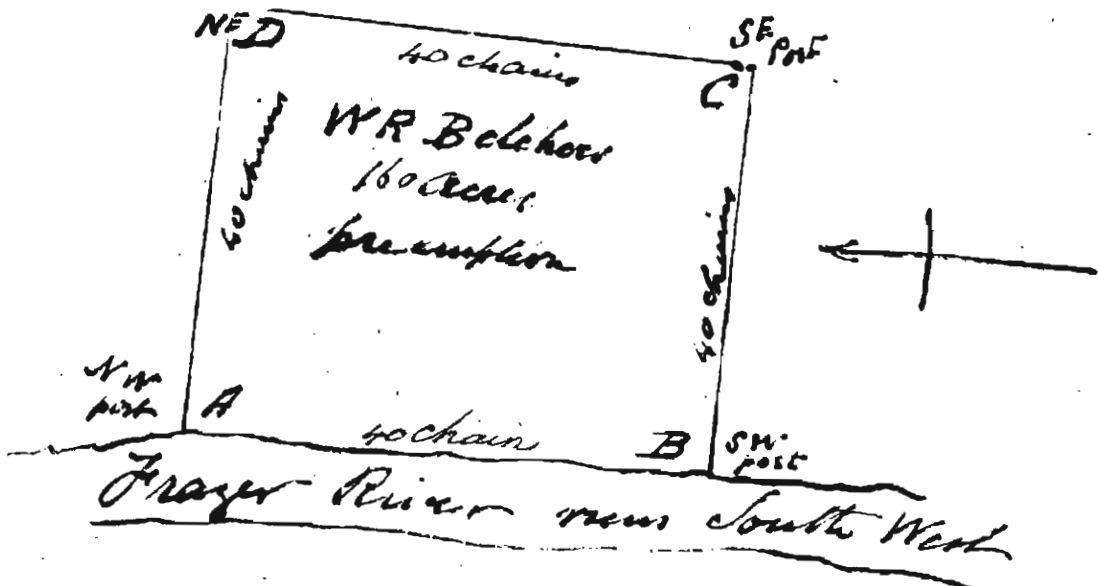 NE D
SE Post
40 chains
C
W R Belcher
160 acres
preemption
40 chains
40 chains
NW post
A
40 chain
B
SW post
Frazer River runs South West